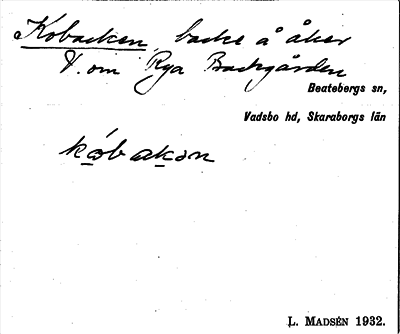 Kobacken, backe å åker
V. om Rya Backgården
Beatebergs sn,
Vadsbo hd, Skaraborgs län
kóbakən
L. MADSÉN 1932.